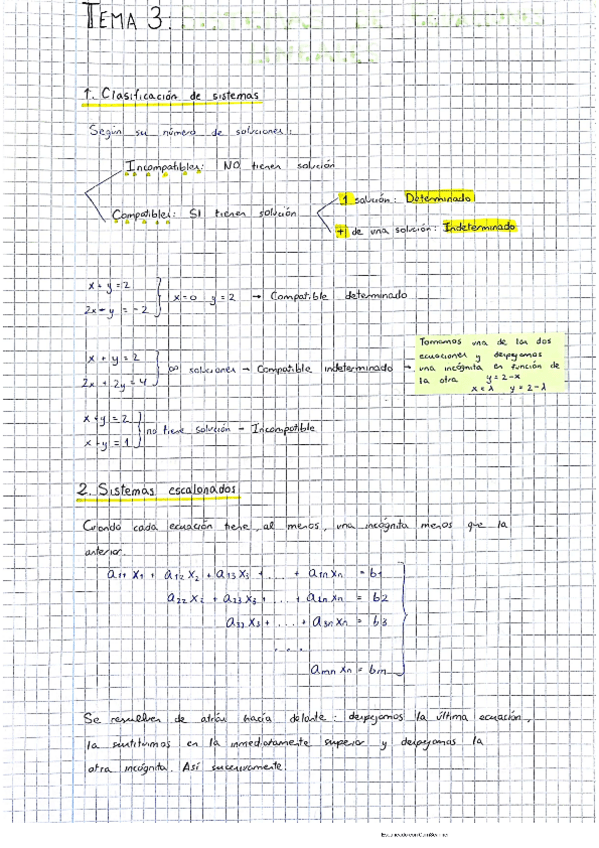 TEMA 3:
1. Clasificación de sistemas
Según su número de soluciones:
Incompatibles: NO tienen solución
Compatibles: SI tienen solución
1 solución: Determinado
+ de una solución: Indeterminado
x + y = 2
2x - y = -2
x=0 y=2 → Compatible determinado
x + y = 2
2x + 2y = 4
∞ soluciones → Compatible indeterminado →
Tomamos una de las dos
ecuaciones y despejamos
una incógnita en función de
la otra y = 2-x
x = λ y = 2-λ
x + y = 2
x + y = 1
no tiene solución - Incompatible
2. Sistemas escalonados
Cuando cada ecuación tiene, al menos, una incógnita menos que la
anterior.
a11 x1 + a12 x2 + a13 x3 + ... + a1n xn = b1
a22 x2 + a23 x3 + ... + a2n xn = b2
a33 x3 + ... + a3n xn = b3
...
amn xn = bm
Se resuelven de atrás hacia delante: despejamos la última ecuación,
la sustituimos en la inmediatamente superior y despejamos la
otra incógnita. Así sucesivamente.